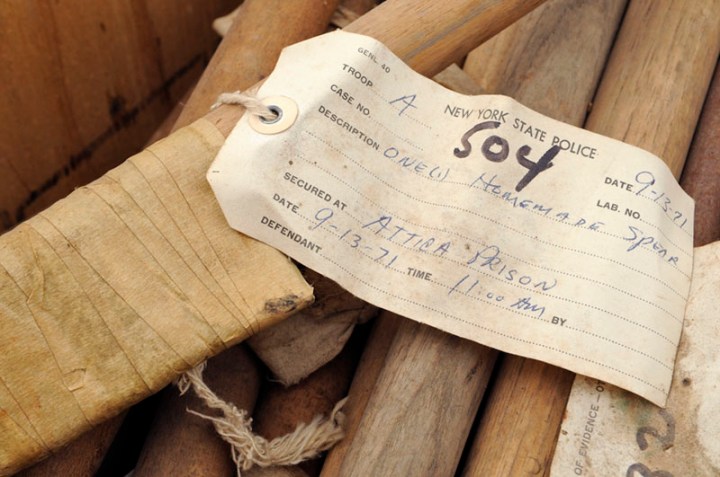 GENL 40
TROOP A NEW YORK STATE POLICE
CASE NO. 504 DATE 9-13-71
DESCRIPTION ONE(1) HOMEMADE SPEAR LAB. NO.
SECURED AT ATTICA PRISON
DATE 9-13-71 TIME 11:00 AM BY
DEFENDANT
OF EVIDENCE-
32